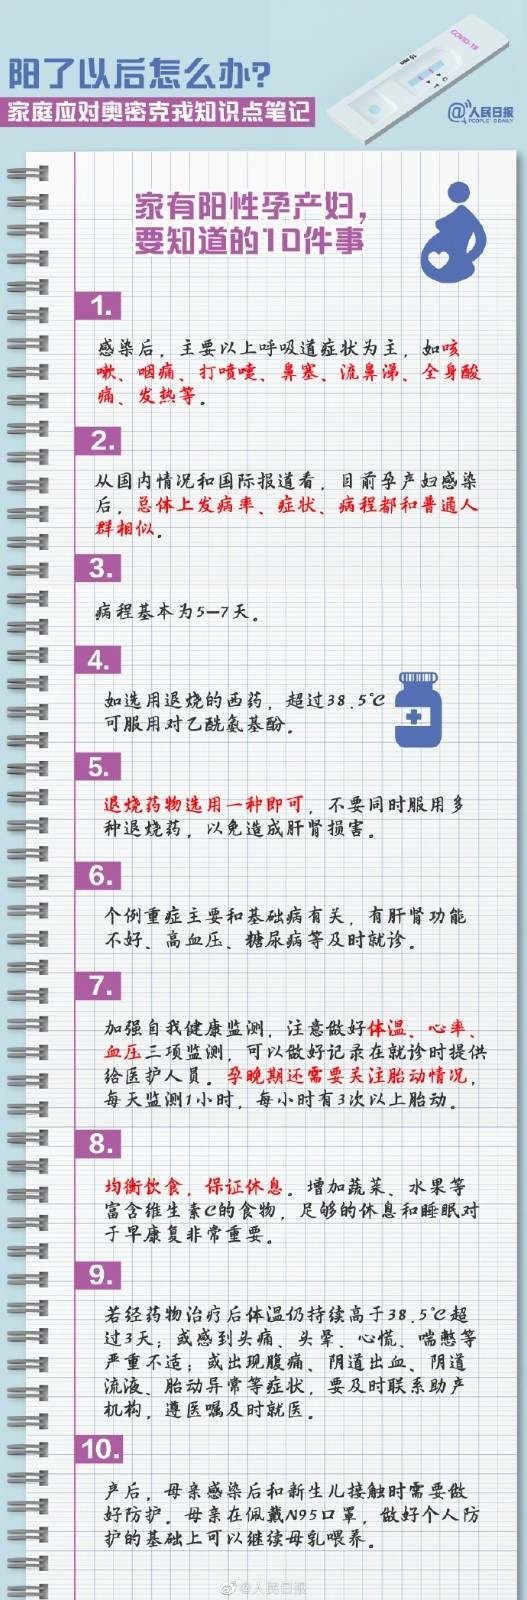 阳了以后怎么办?
家庭应对奥密克戎知识点笔记
COVID-19
15 min
C
T
@人民日报
PEOPLE'S DAILY
家有阳性孕产妇，
要知道的10件事
1.
感染后，主要以上呼吸道症状为主，如咳
嗽、咽痛、打喷嚏、鼻塞、流鼻涕、全身酸
痛、发热等。
2.
从国内情况和国际报道看，目前孕产妇感染
后，总体上发病率、症状、病程都和普通人
群相似。
3.
病程基本为5—7天。
4.
如选用退烧的西药，超过38.5℃
可服用对乙酰氨基酚。
5.
退烧药物选用一种即可，不要同时服用多
种退烧药，以免造成肝肾损害。
6.
个例重症主要和基础病有关，有肝肾功能
不好、高血压、糖尿病等及时就诊。
7.
加强自我健康监测，注意做好体温、心率、
血压三项监测，可以做好记录在就诊时提供
给医护人员。孕晚期还需要关注胎动情况，
每天监测1小时，每小时有3次以上胎动。
8.
均衡饮食，保证休息。增加蔬菜、水果等
富含维生素C的食物，足够的休息和睡眠对
于早康复非常重要。
9.
若经药物治疗后体温仍持续高于38.5℃超
过3天；或感到头痛、头晕、心慌、喘憋等
严重不适；或出现腹痛、阴道出血、阴道
流液、胎动异常等症状，要及时联系助产
机构，遵医嘱及时就医。
10.
产后，母亲感染后和新生儿接触时需要做
好防护。母亲在佩戴N95口罩，做好个人防
护的基础上可以继续母乳喂养。
@人民日报